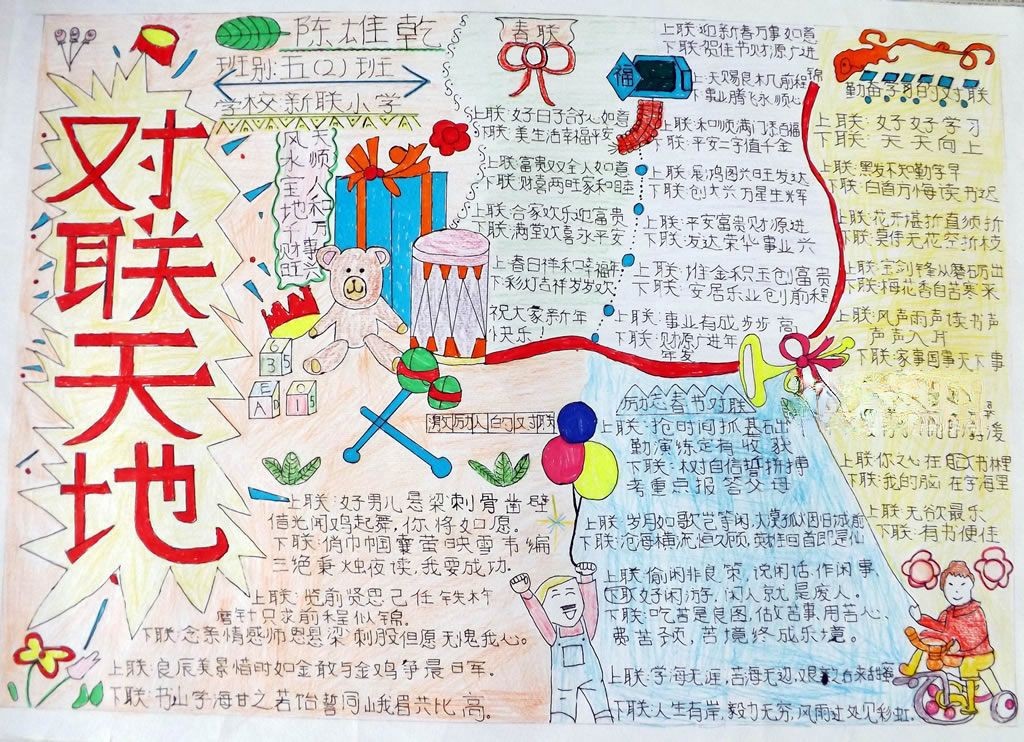 对联天地
陈雄乾
班别:五(2)班
学校新联小学
天师人和万事兴
风水宝地千财旺
春联
上联:好日子合人如意
下联:美生活幸福平安
上联:富贵双全人如意
下联:财喜两旺家和睦
上联:合家欢乐迎富贵
下联:满堂欢喜永平安
上:春日祥和幸福年
下:彩灯吉祥岁岁欢
祝大家新年
快乐!
福
上联:迎新春万事如意
下联:贺佳节财源广进
上:天赐良机前程锦
下:事业腾飞永顺心
上联:和顺满门添百福
下联:平安二字值千金
上联:展鸿图兴旺发达
下联:创大业万星生辉
上联:平安富贵财源进
下联:发达荣华事业兴
上联:堆金积玉创富贵
下联:安居乐业创前程
上联:事业有成步步高
下联:财源广进年
年发
勤奋学习的对联
上联:好好学习
下联:天天向上
上联:黑发不知勤学早
下联:白首方悔读书迟
上联:花开堪折直须折
下联:莫待无花空折枝
上联:宝剑锋从磨砺出
下联:梅花香自苦寒来
上联:风声雨声读书声
声声入耳
下联:家事国事天下事
上联你之心在书林里
下联:我的脑在学海里
上联:无欲最乐
下联:有书便佳
激励人的对联
上联:好男儿悬梁刺骨凿壁
借光闻鸡起舞,你将如愿。
下联:俏巾帼囊萤映雪韦编
三绝秉烛夜读,我要成功.
上联:览前贤思己任铁杵
磨针只求前程似锦。
下联:念亲情感师恩悬梁刺股但愿无愧我心。
上联:良辰美景惜时如金敢与金鸡争晨日军。
下联:书山学海甘之若饴誓同峨眉共比高。
励志春节对联
上联:抢时间抓基础
勤演练定有收获
下联:树自信誓拼搏
考重点报答父母
上联:偷闲非良策,说闲话,作闲事
下联:吃苦是良图,估故事,用苦心、
费苦顷,苦境终成乐境。
上联:学海无涯,苦海无边,
下联:人生有岸,毅力无穷,风雨过处见彩虹.